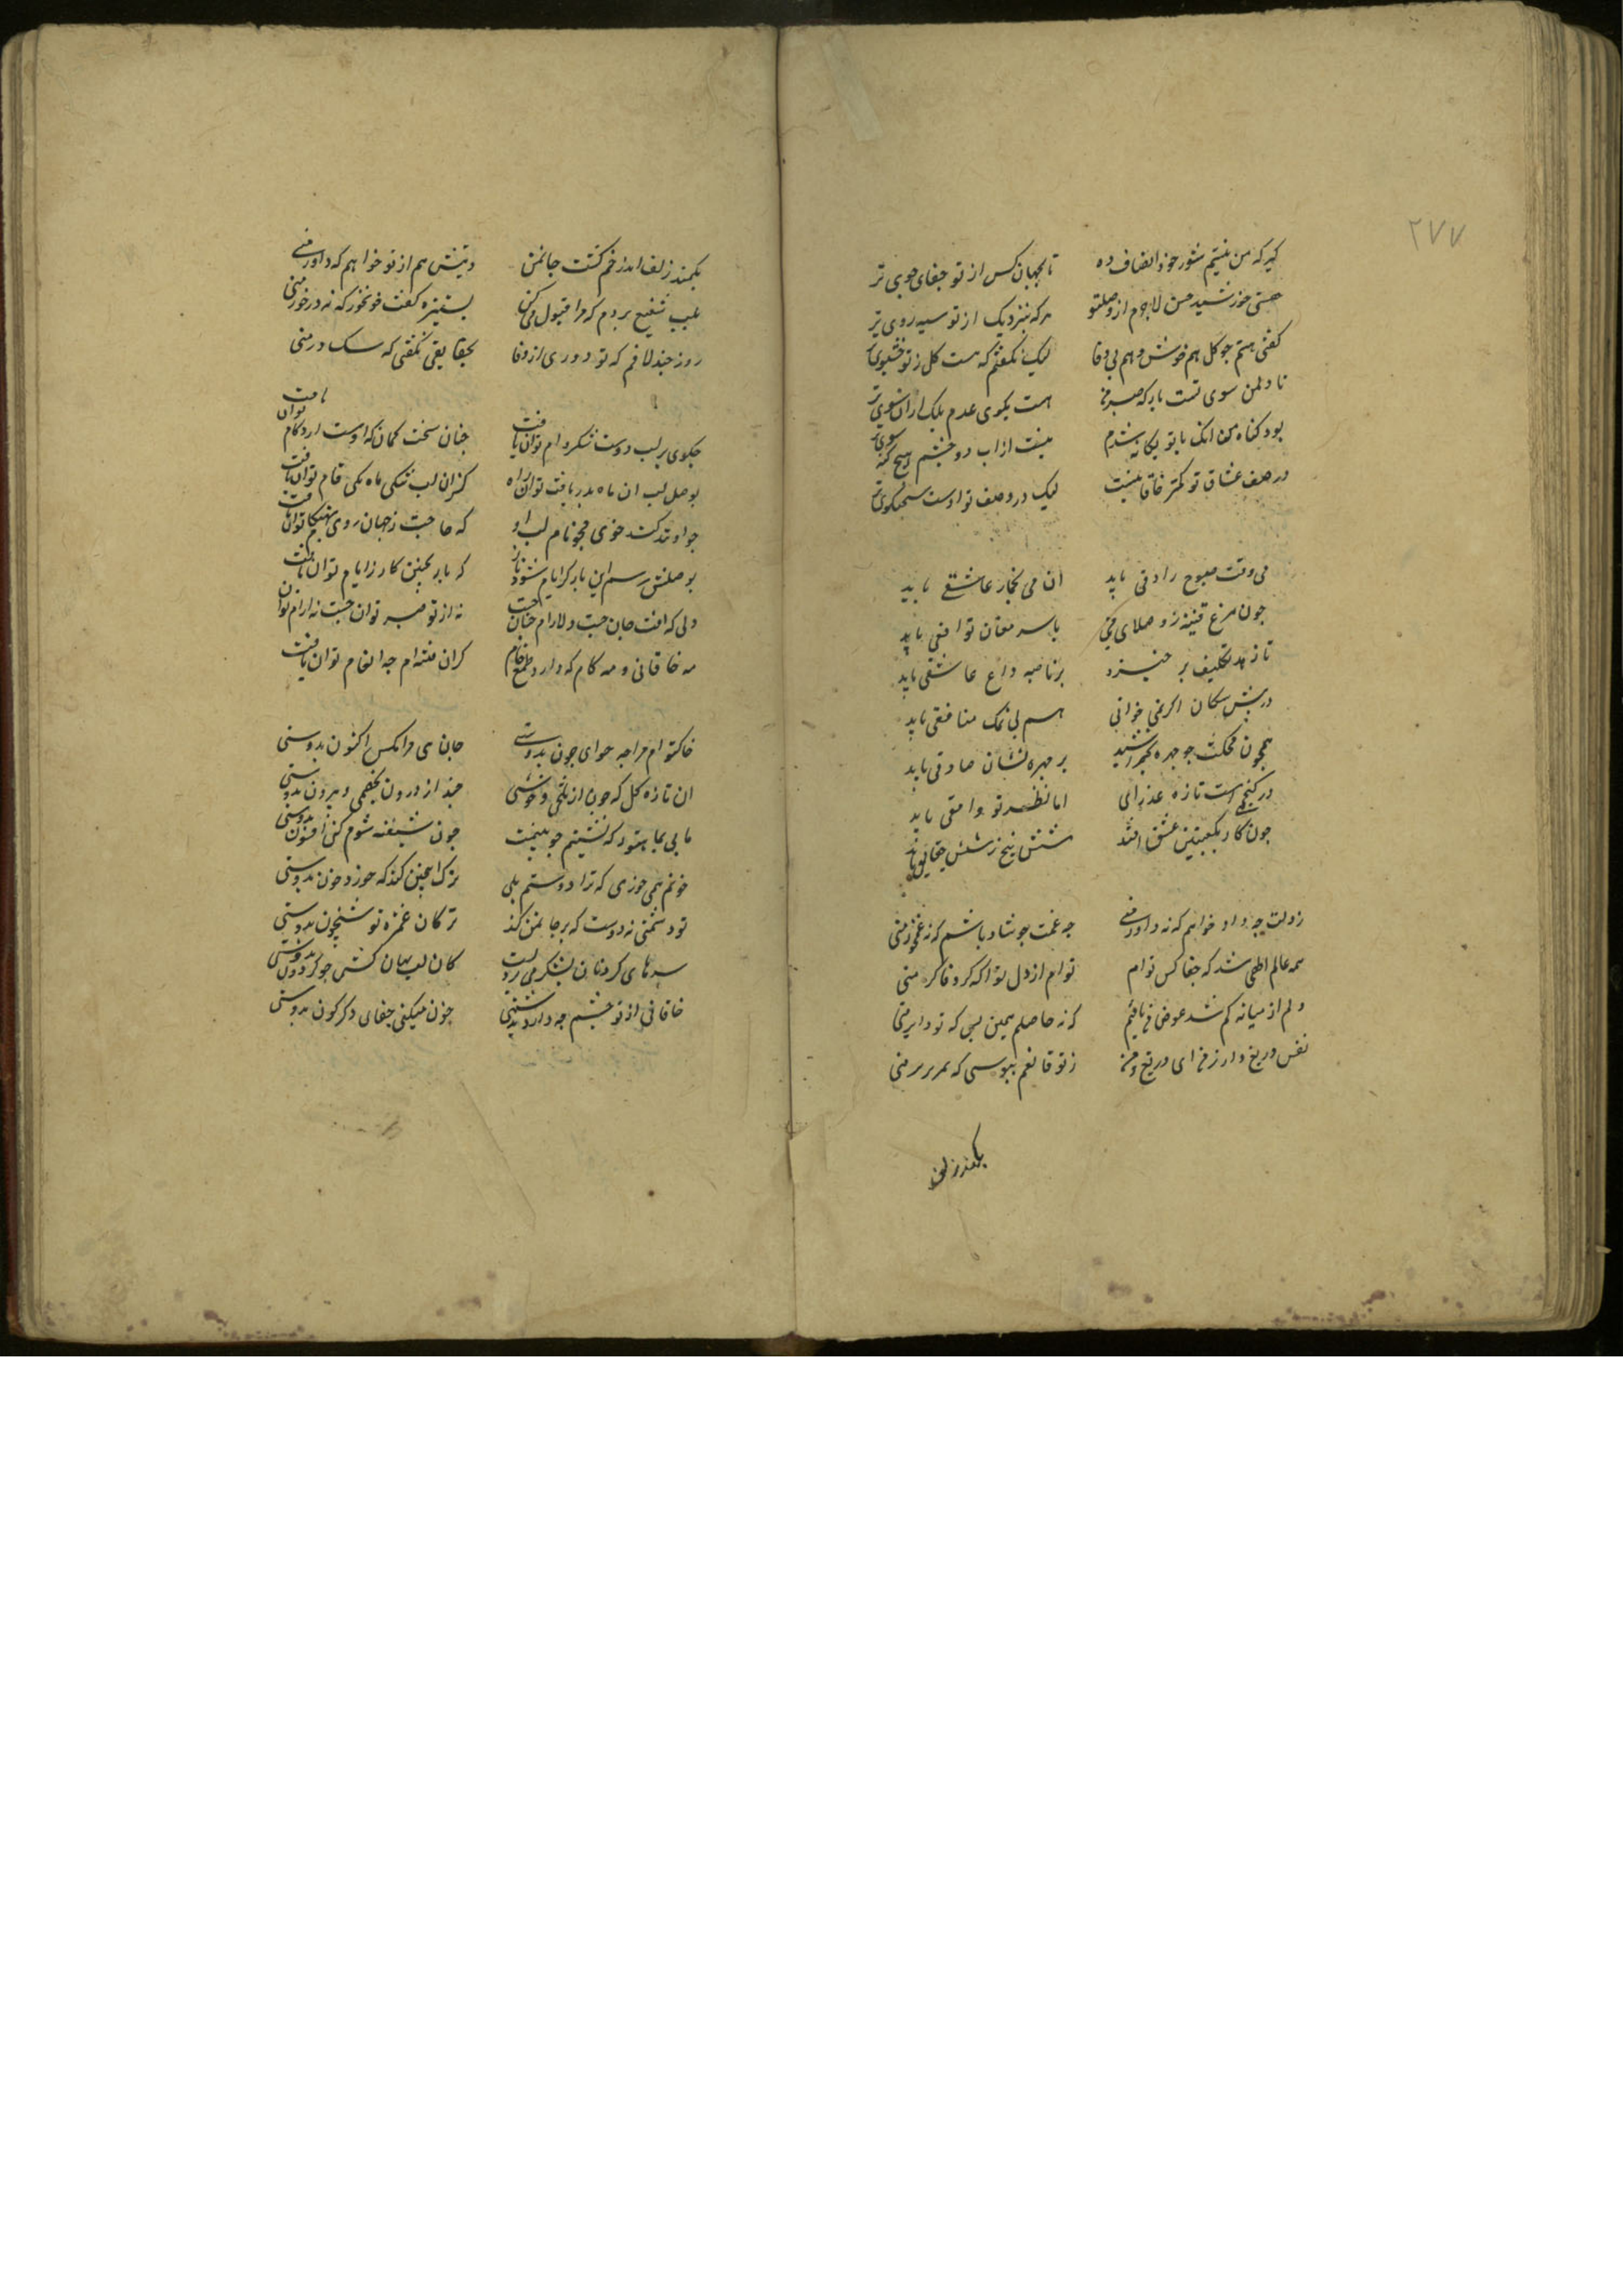 ۲۷۷
کیر که من نیستم شور خود انصاف ده تا بجهان کس از تو جفای جوی تر
هستی خورشید حسن لاجرم از وصلتو هر که بنزدیک از تو سیه روی تر
کفتی هستم جو کل هم خوش و هم بی وفا لیک نکفتم که هست کل ز تو خشبوی تر
تا دل من سوی تست بار که صبر من هست بکوی عدم بلک ازان سوی تر
بود کناه من انک با تو یکانه شدم نیست از اب دو چشم هیچ کنه شوی تر
در صف عشاق تو کمتر خاقانیست لیک در وصف تو اوست سخنکوی تر
می وقت صبوح راوقی باید ان می بخار عاشقی باید
جون مرغ قنینه زد صلای می با سر مغان توافقی باید
تا زهد تکلیف بر خیزد بر ناصیه داغ عاشقی باید
در پیش سکان اکر نمی خوانی هم بی نمک منافقی باید
همجون محکت جو جهره بر جهره نشان صادقی باید
در کنج است تازه عذرائی اما نظر تو وامقی باید
جون کار بکعبتین عشق افتد شش پنج زنش حقایقی باید
ز ولت جه داد خواهم که نه داور منی جه غمت جو شاد باشم که نه غمخور منی
همه عالم اطهی شد که جفا کس توام توام از دل تو اکه که وفا کر منی
دلم از میانه کم شد عوض جه یافتم که نه حاصلم همین بس که تو دلبر منی
نفس دریغ دار ز من ای دریغ من ز تو قانعم ببوسی که سر بر منی
بکمند زلف
بکمند زلف اندر خم کشت جانمن دیتش هم از تو خواهم که داور منی
بلب شفیع بردم که مرا قبول کن بستیزه کفت خونخور که نه درخور منی
روز جند لافم که تو دوری از وفا بحقایقی نکفتی که سک در منی
جکوی بر لب دوست شکر وام توان یافت جنان سخت کمان که اوست ازو کام توان یافت
بوصل لب ان ماه بدر یافت توان راه کزان لب شکی ماه یکی قام توان یافت
جو او تند کند خوی مجو نام لب او که حاجت ز جهان روی بهنکام توان یافت
بوصلش رسم این بار کر ایام شود یار که یار بجنین کار ز ایام توان یافت
دلی که افت جان جست و دلارام جنان جست نه از تو صبر توان جست نه ارام توان
مه خاقانی و مه کام که دارد طمع خام کزان فتنه ام جه انعام توان یافت
خاکتو ام مرا جه خوای جون بدوستی جان می مرا مکس اکنون بدوستی
ان تازه کل که جون از تلخی و خوشی جند از درون بخصمی و بیرون بدوستی
ما بی بما بستود که نشیتم جو بینمت جون شیفته شوم کنی افسون بدوستی
خونم همی خوری که ترا دوستم بلی ترک اجنین کند که خورد خون بدوستی
تو دشمنی نه دوست که بر جا نمن کند ترکان غمزه تو شبیخون بدوستی
سرهای کردنان بلشکر می برد لبت کان لب بهان کش جو کردون بدوستی
خاقانی از تو جشم جه دارد بدشمنی جون میکنی جفای دکرکون بدوستی